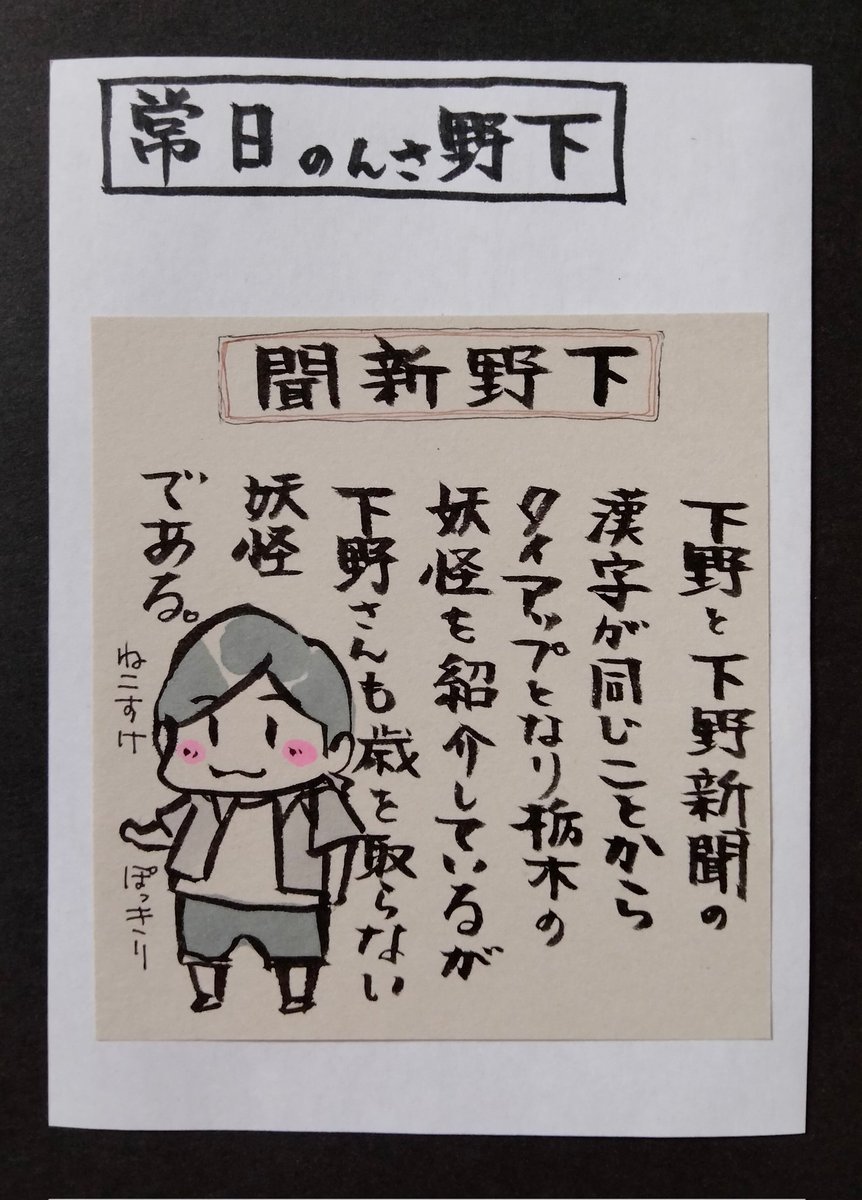 下野さんの日常
下野新聞
下野と下野新聞の
漢字が同じことから
タイアップとなり栃木の
妖怪を紹介しているが
下野さんも歳を取らない
妖怪
である。
ねこすけ
ぽっきーり